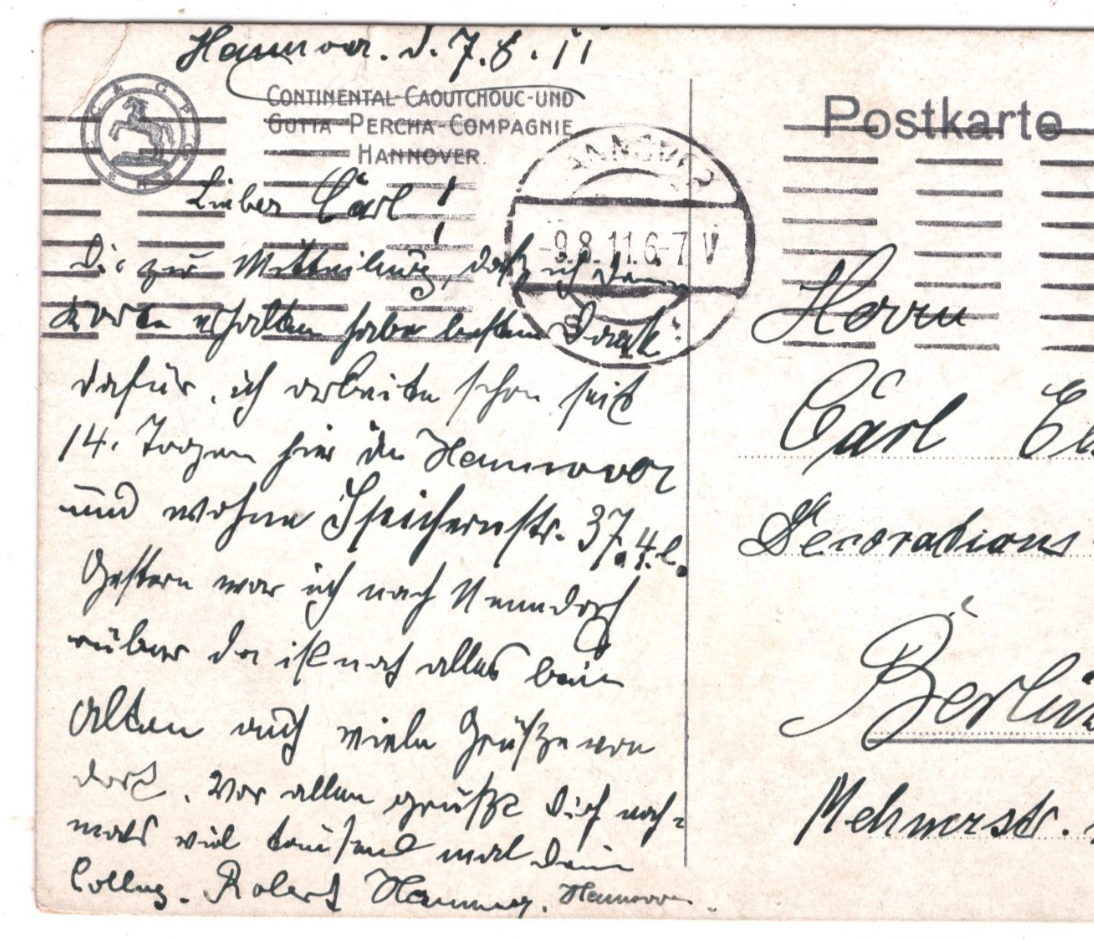 Hannover. d. 7.8.11
CONTINENTAL-CAOUTCHOUC-UND
GUTTA-PERCHA-COMPAGNIE
HANNOVER.
Postkarte
HANNOVER
-9.8.11.6-7 V
Lieber Carl!
Die zur Mitteilung, daß ich deine
Karte erhalten habe besten Dank
dafür, ich arbeite schon seit
14. Tagen hier in Hannover
und wohne Speichernstr. 37. 4. l.
Gestern war ich nach Nenndorf
rüber da ist noch alles beim
alten auch viele Grüße von
dort. Vor allen grüßt dich noch-
mals viel tausend mal dein
Colleg. Robert Hannover.
Herrn
Carl
Decorations
Berlin